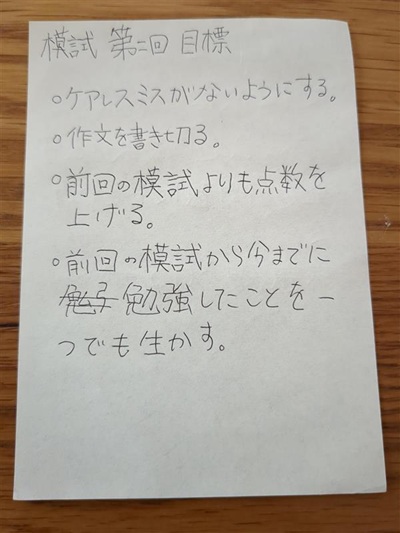 模試 第二回 目標
○ケアレスミスがないようにする。
○作文を書き切る。
○前回の模試よりも点数を
上げる。
○前回の模試から今までに
勉強したことを一
つでも生かす。